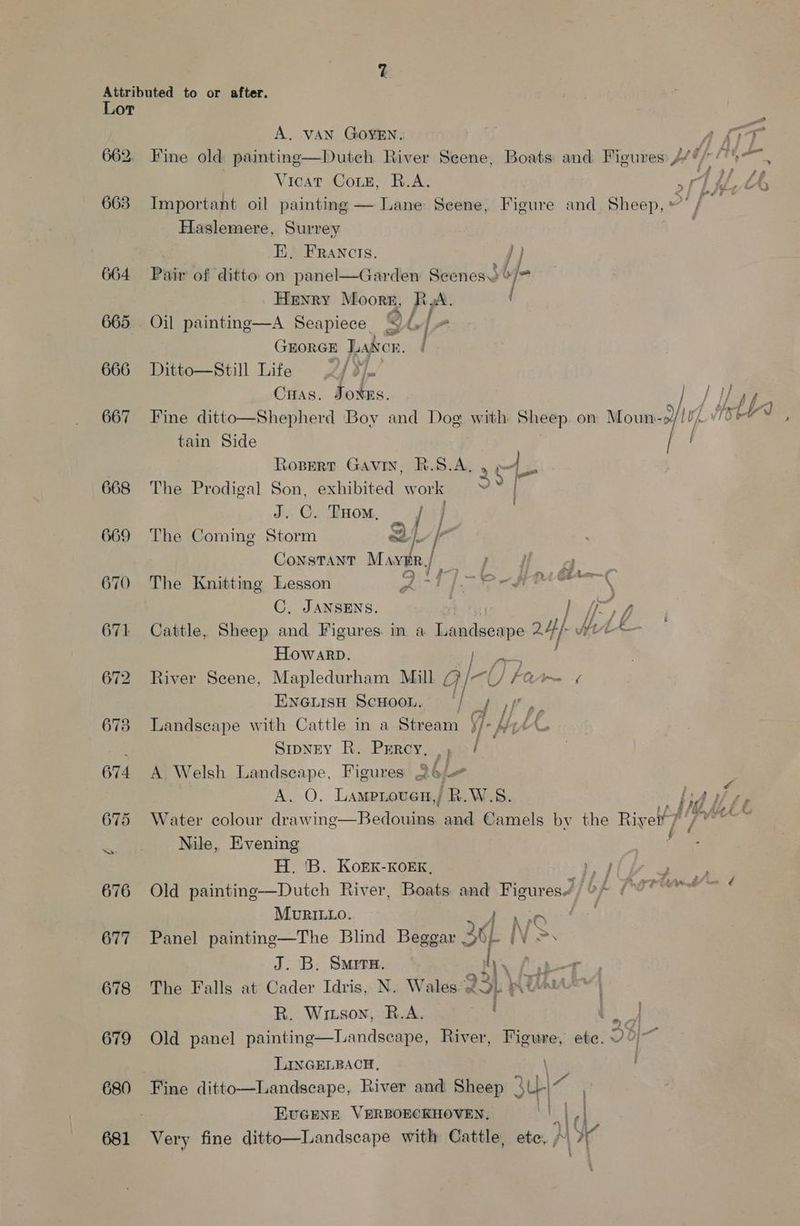 7
Attributed to or after.
Lot
A. VAN GOYEN.
662 Fine old painting—Dutch River Scene, Boats and Figures
VICAT COLE, R.A.
663 Important oil painting — Lane Scene, Figure and Sheep,
Haslemere, Surrey
E. FRANCIS.
664 Pair of ditto on panel—Garden Scenes
HENRY MOORE, R.A.
665 Oil painting—A Seapiece
GEORGE LANCE.
666 Ditto—Still Life
CHAS. JONES.
667 Fine ditto—Shepherd Boy and Dog with Sheep on Moun-
tain Side
ROBERT GAVIN, R.S.A.
668 The Prodigal Son, exhibited work
J. C. THOM,
669 The Coming Storm
CONSTANT MAYER,
670 The Knitting Lesson
C. JANSENS.
671 Cattle, Sheep and Figures in a Landscape 24/-
HOWARD.
672 River Scene, Mapledurham Mill
ENGLISH SCHOOL.
673 Landscape with Cattle in a Stream
SIDNEY R. PERCY,
674 A Welsh Landscape, Figures
A. O. LAMPLOUGH, R.W.S.
675 Water colour drawing—Bedouins and Camels by the River
Nile, Evening
H. B. KOEK-KOEK,
676 Old painting—Dutch River, Boats and Figures
MURILLO.
677 Panel painting—The Blind Beggar
J. B. SMITH.
678 The Falls at Cader Idris, N. Wales
R. WILSON, R.A.
679 Old panel painting—Landscape, River, Figure, etc.
LINGELBACH,
680 Fine ditto—Landscape, River and Sheep
EUGENE VERBOECKHOVEN.
681 Very fine ditto—Landscape with Cattle, etc.